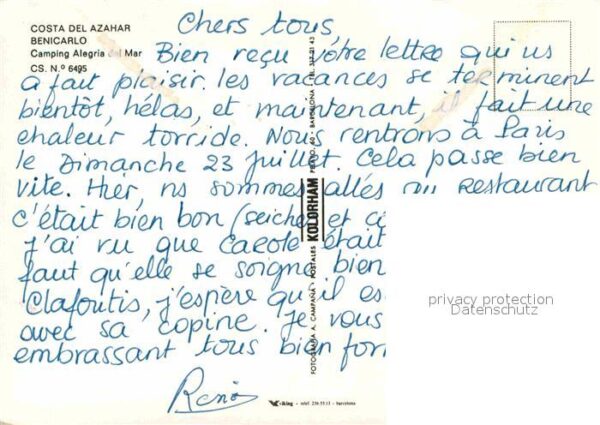 COSTA DEL AZAHAR
BENICARLO
Camping Alegria del Mar
CS. N.º 6495
Chers tous
Bien reçu vôtre lettre qui ns
a fait plaisir. les vacances se terminent
bientôt, hélas, et maintenant, il fait une
chaleur torride. Nous rentrons à Paris
le Dimanche 23 juillet. Cela passe bien
vite. Hier, ns sommes allés au restaurant
c'était bien bon (seiche et
J'ai vu que Carole était
faut qu'elle se soigne bien
Clafoutis, j'espère qu'il es
avec sa copine. Je vous
embrassant tous bien for
René
FOTOGRAFIA A. CAMPAÑA - POSTALES KOLORHAM
BARCELONA
privacy protection
Datenschutz
barcelona